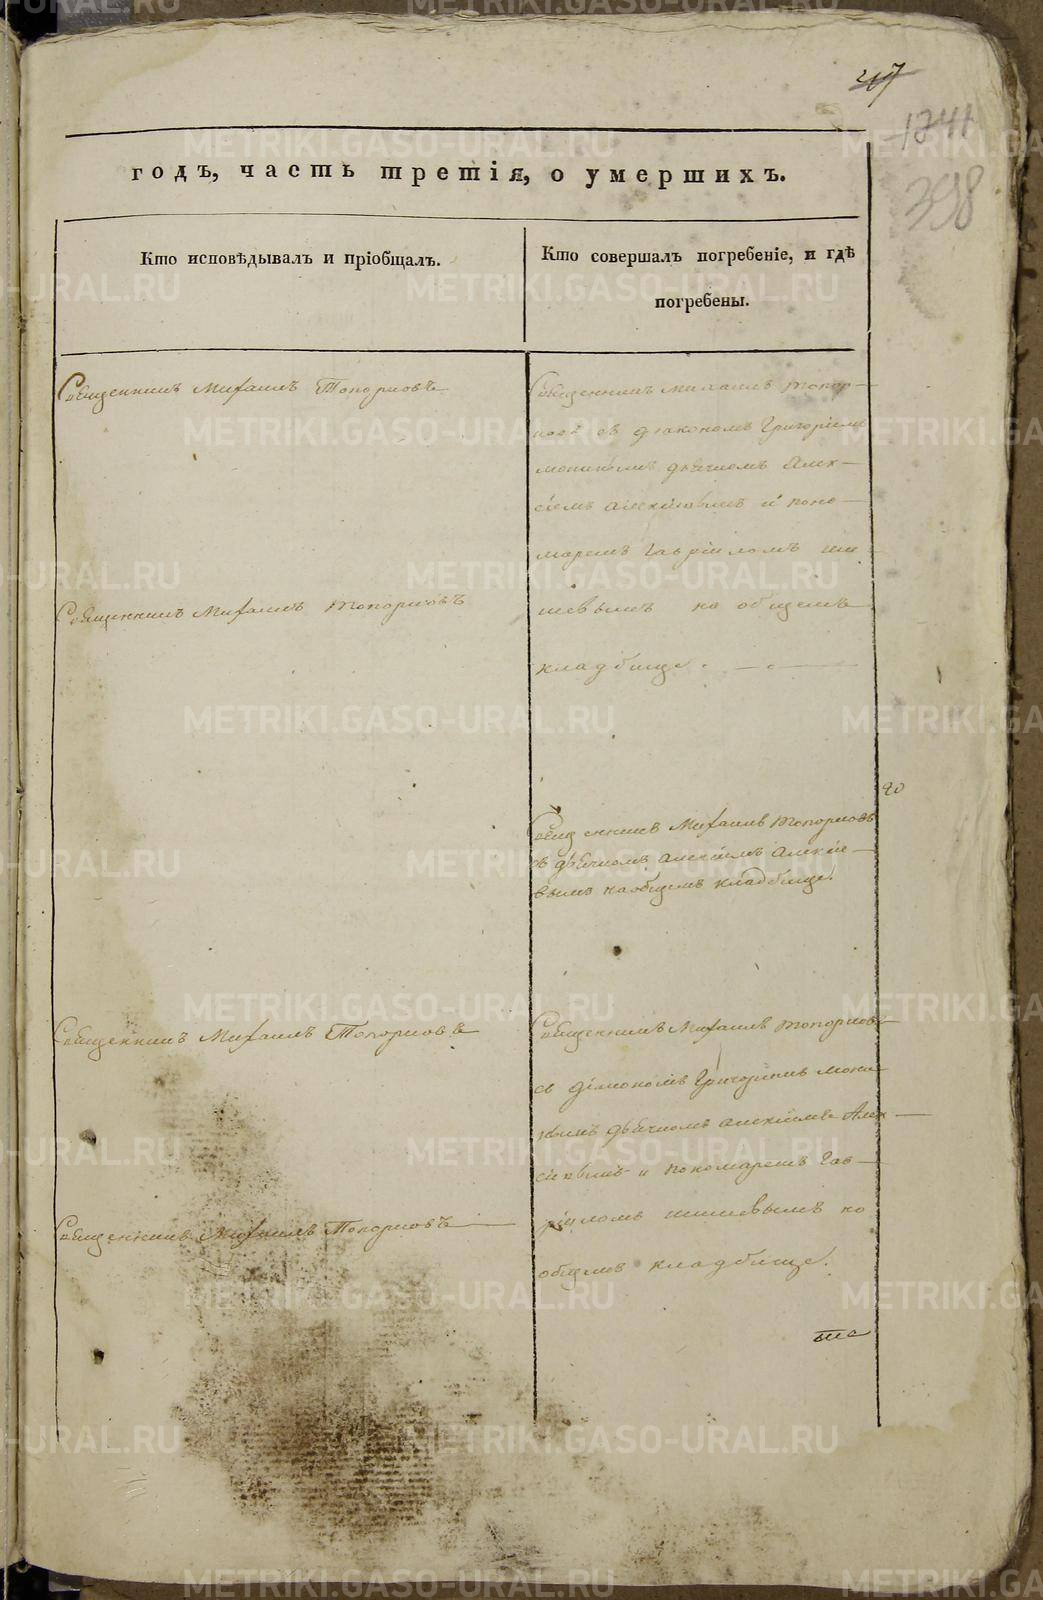 1241
398
годъ, часть третія, о умершихъ.
Кто исповѣдывалъ и пріобщалъ.
Кто совершалъ погребеніе, и гдѣ
погребены.
Священникъ Михаилъ Топорковъ
Священникъ Михаилъ Топор-
ковъ съ діакономъ Григоріемъ
дьячкомъ Алек-
сіемъ Алексіевымъ и поно-
маремъ Гавріиломъ Ши-
шевымъ на общемъ
кладбище.
Священникъ Михаилъ Топорковъ
Священникъ Михаилъ Топорковъ
съ дьячкомъ Алексіемъ Алексіе-
вымъ на общемъ кладбище.
Священникъ Михаилъ Топорковъ
Священникъ Михаилъ Топорковъ
съ діакономъ Григоріемъ
дьячкомъ Алексіемъ Алек-
сіевымъ и пономаремъ Гав-
ріиломъ Шишевымъ на
общемъ кладбище.
Священникъ Михаилъ Топорковъ
METRIKI.GASO-URAL.RU